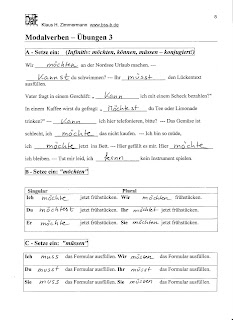 Klaus H. Zimmermann www.bss.ib.de
Modalverben – Übungen 3
A - Setze ein: (Infinitiv: möchten, können, müssen – konjugiert!)
Wir möchten an der Nordsee Urlaub machen. —
Kannst du schwimmen? — Ihr müsst den Lückentext
ausfüllen.
Vater fragt in einem Geschäft: „Kann ich mit einem Scheck bezahlen?"
In einem Kaffee wirst du gefragt: „Möchtest du Tee oder Limonade
trinken?" — Kann ich hier telefonieren, bitte? — Das Gemüse ist
schlecht, ich möchte das nicht kaufen. — Ich bin so müde,
ich möchte jetzt ins Bett. — Hier gefällt es mir. Hier möchte
ich bleiben. — Tut mir leid, ich kann kein Instrument spielen.
B - Setze ein: "möchten"!
Singular Plural
Ich möchte jetzt frühstücken. Wir möchten jetzt frühstücken.
Du möchtest jetzt frühstücken. Ihr möchtet jetzt frühstücken.
Er möchte jetzt frühstücken. Sie möchten jetzt frühstücken.
C - Setze ein: "müssen"!
Ich muss das Formular ausfüllen. Wir müssen das Formular ausfüllen.
Du musst das Formular ausfüllen. Ihr müsst das Formular ausfüllen.
Sie muss das Formular ausfüllen. Sie müssen das Formular ausfüllen.